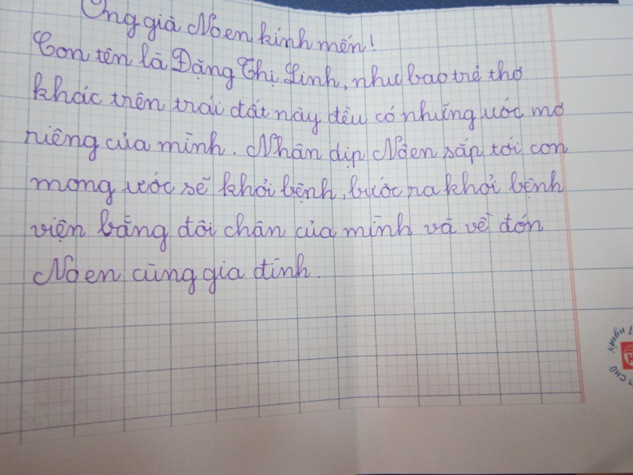 Ông già Noen kính mến!
Con tên là Đặng Thị Linh, như bao trẻ thơ
khác trên trái đất này đều có những ước mơ
riêng của mình. Nhân dịp Noen sắp tới con
mong ước sẽ khỏi bệnh, bước ra khỏi bệnh
viện bằng đôi chân của mình và về đón
Noen cùng gia đình.